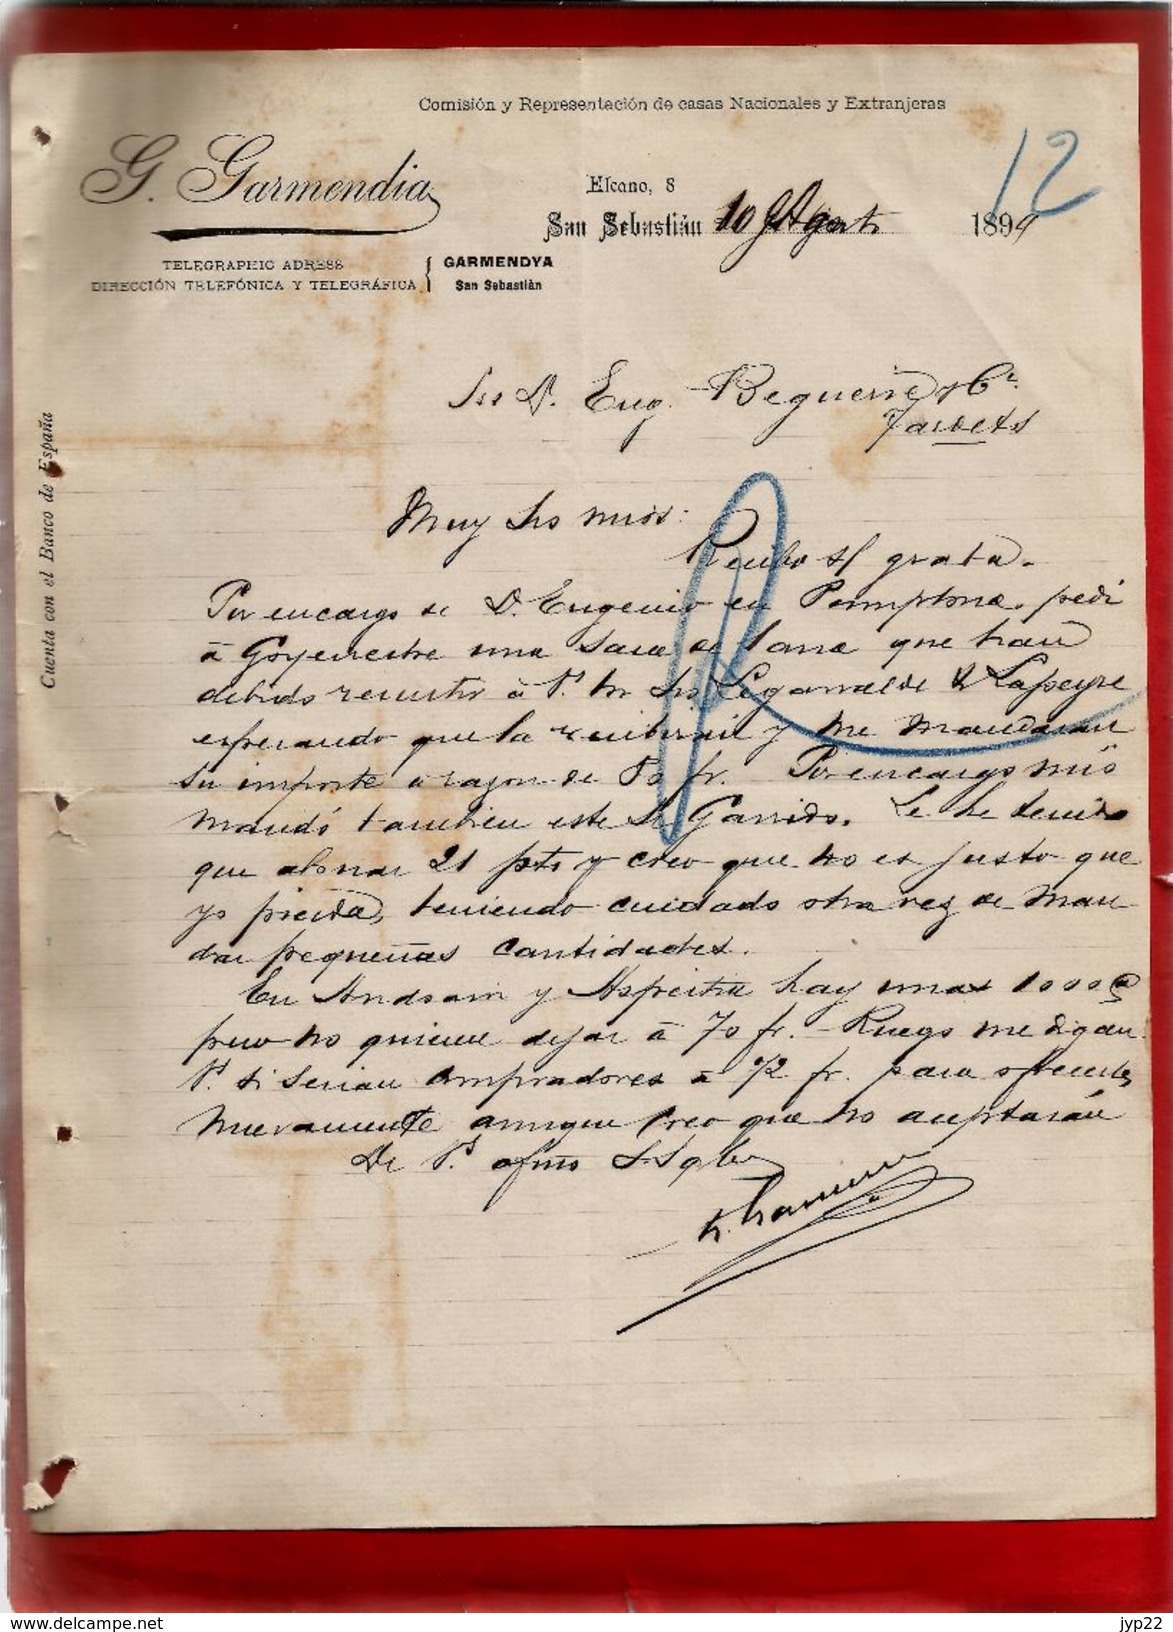 Comisión y Representación de casas Nacionales y Extranjeras
12
G. Garmendia
Elcano, 8
San Sebastián 10 Agosto 1899
TELEGRAPHIC ADRESS
DIRECCIÓN TELEFÓNICA Y TELEGRÁFICA
GARMENDYA
San Sebastián
Cuenta con el Banco de España
Srs D. Eug. Beguerie y Cª
Tardets
Muy Srs mios:
Recibo s/ grata.
Por encargo de D. Eugenio en Pamplona, pedi
á Goyeneche una saca de lana que han
debido remitir á Vs los Srs Legarralde & Lapeyre
esperando que la recibirian y me mandaran
su importe a razon de 80 fr. Por encargo mio
mandó tambien este Sr Garrido. Le he tenido
que abonar 21 pts y creo que no es justo que
yo pierda, teniendo cuidado otra vez de man
dar pequeñas cantidades.
En Andoain y Aspeitia hay unas 1000 @
pero no quieren dejar á 70 fr. - Ruego me digan
Vs si serian compradores á 72 fr. para ofrecerles
nuevamente aunque creo que no aceptarán
De Vs afmo S.S.
G. Garmendia